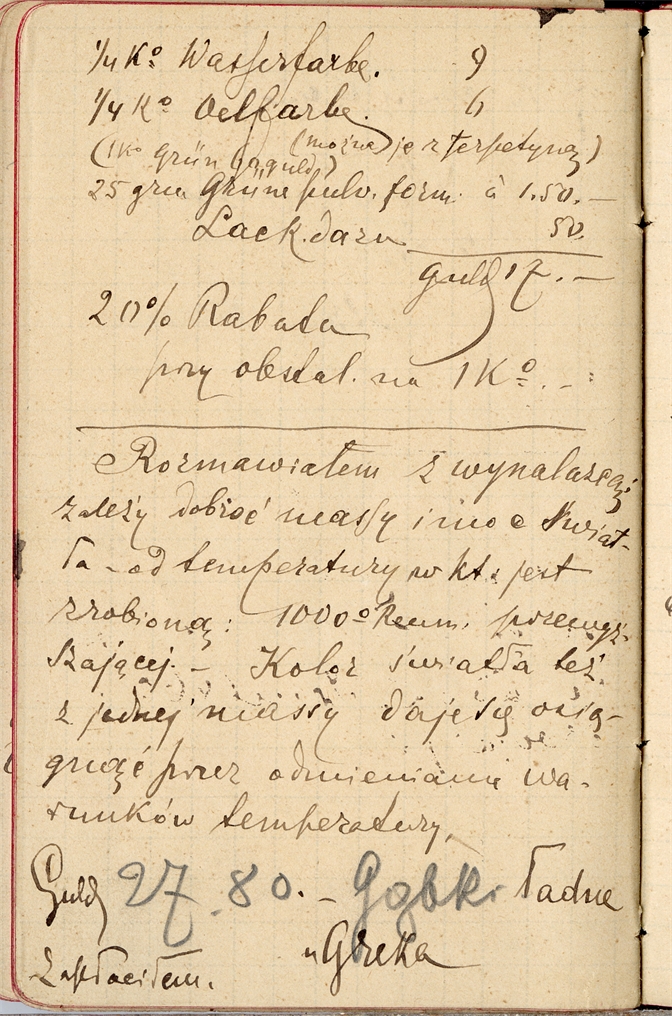 1/4 Ko Wasserfarbe. 9
1/4 Ko Oelfarbe. 6
(1 Ko grün guld) (można je z terpetyną)
25 gru Grüne pulv. form. à 1.50.—
Lack dazu 50.
guld 17.—
20% Rabatu
przy obstal. na 1 Ko. –
Rozmawiałem z wynalazcą;
zależy dobroć massy i moc świat-
ła – od temperatury w kt. jest
zrobioną: 1000° Reum. przewyż-
szającej – Kolor światła też
z jednej massy daje się osią-
gnąć przez odmieniania wa-
runków temperatury.
Guld 27.80. – Gąbki ładne
u Greka
Zapłaciłem.